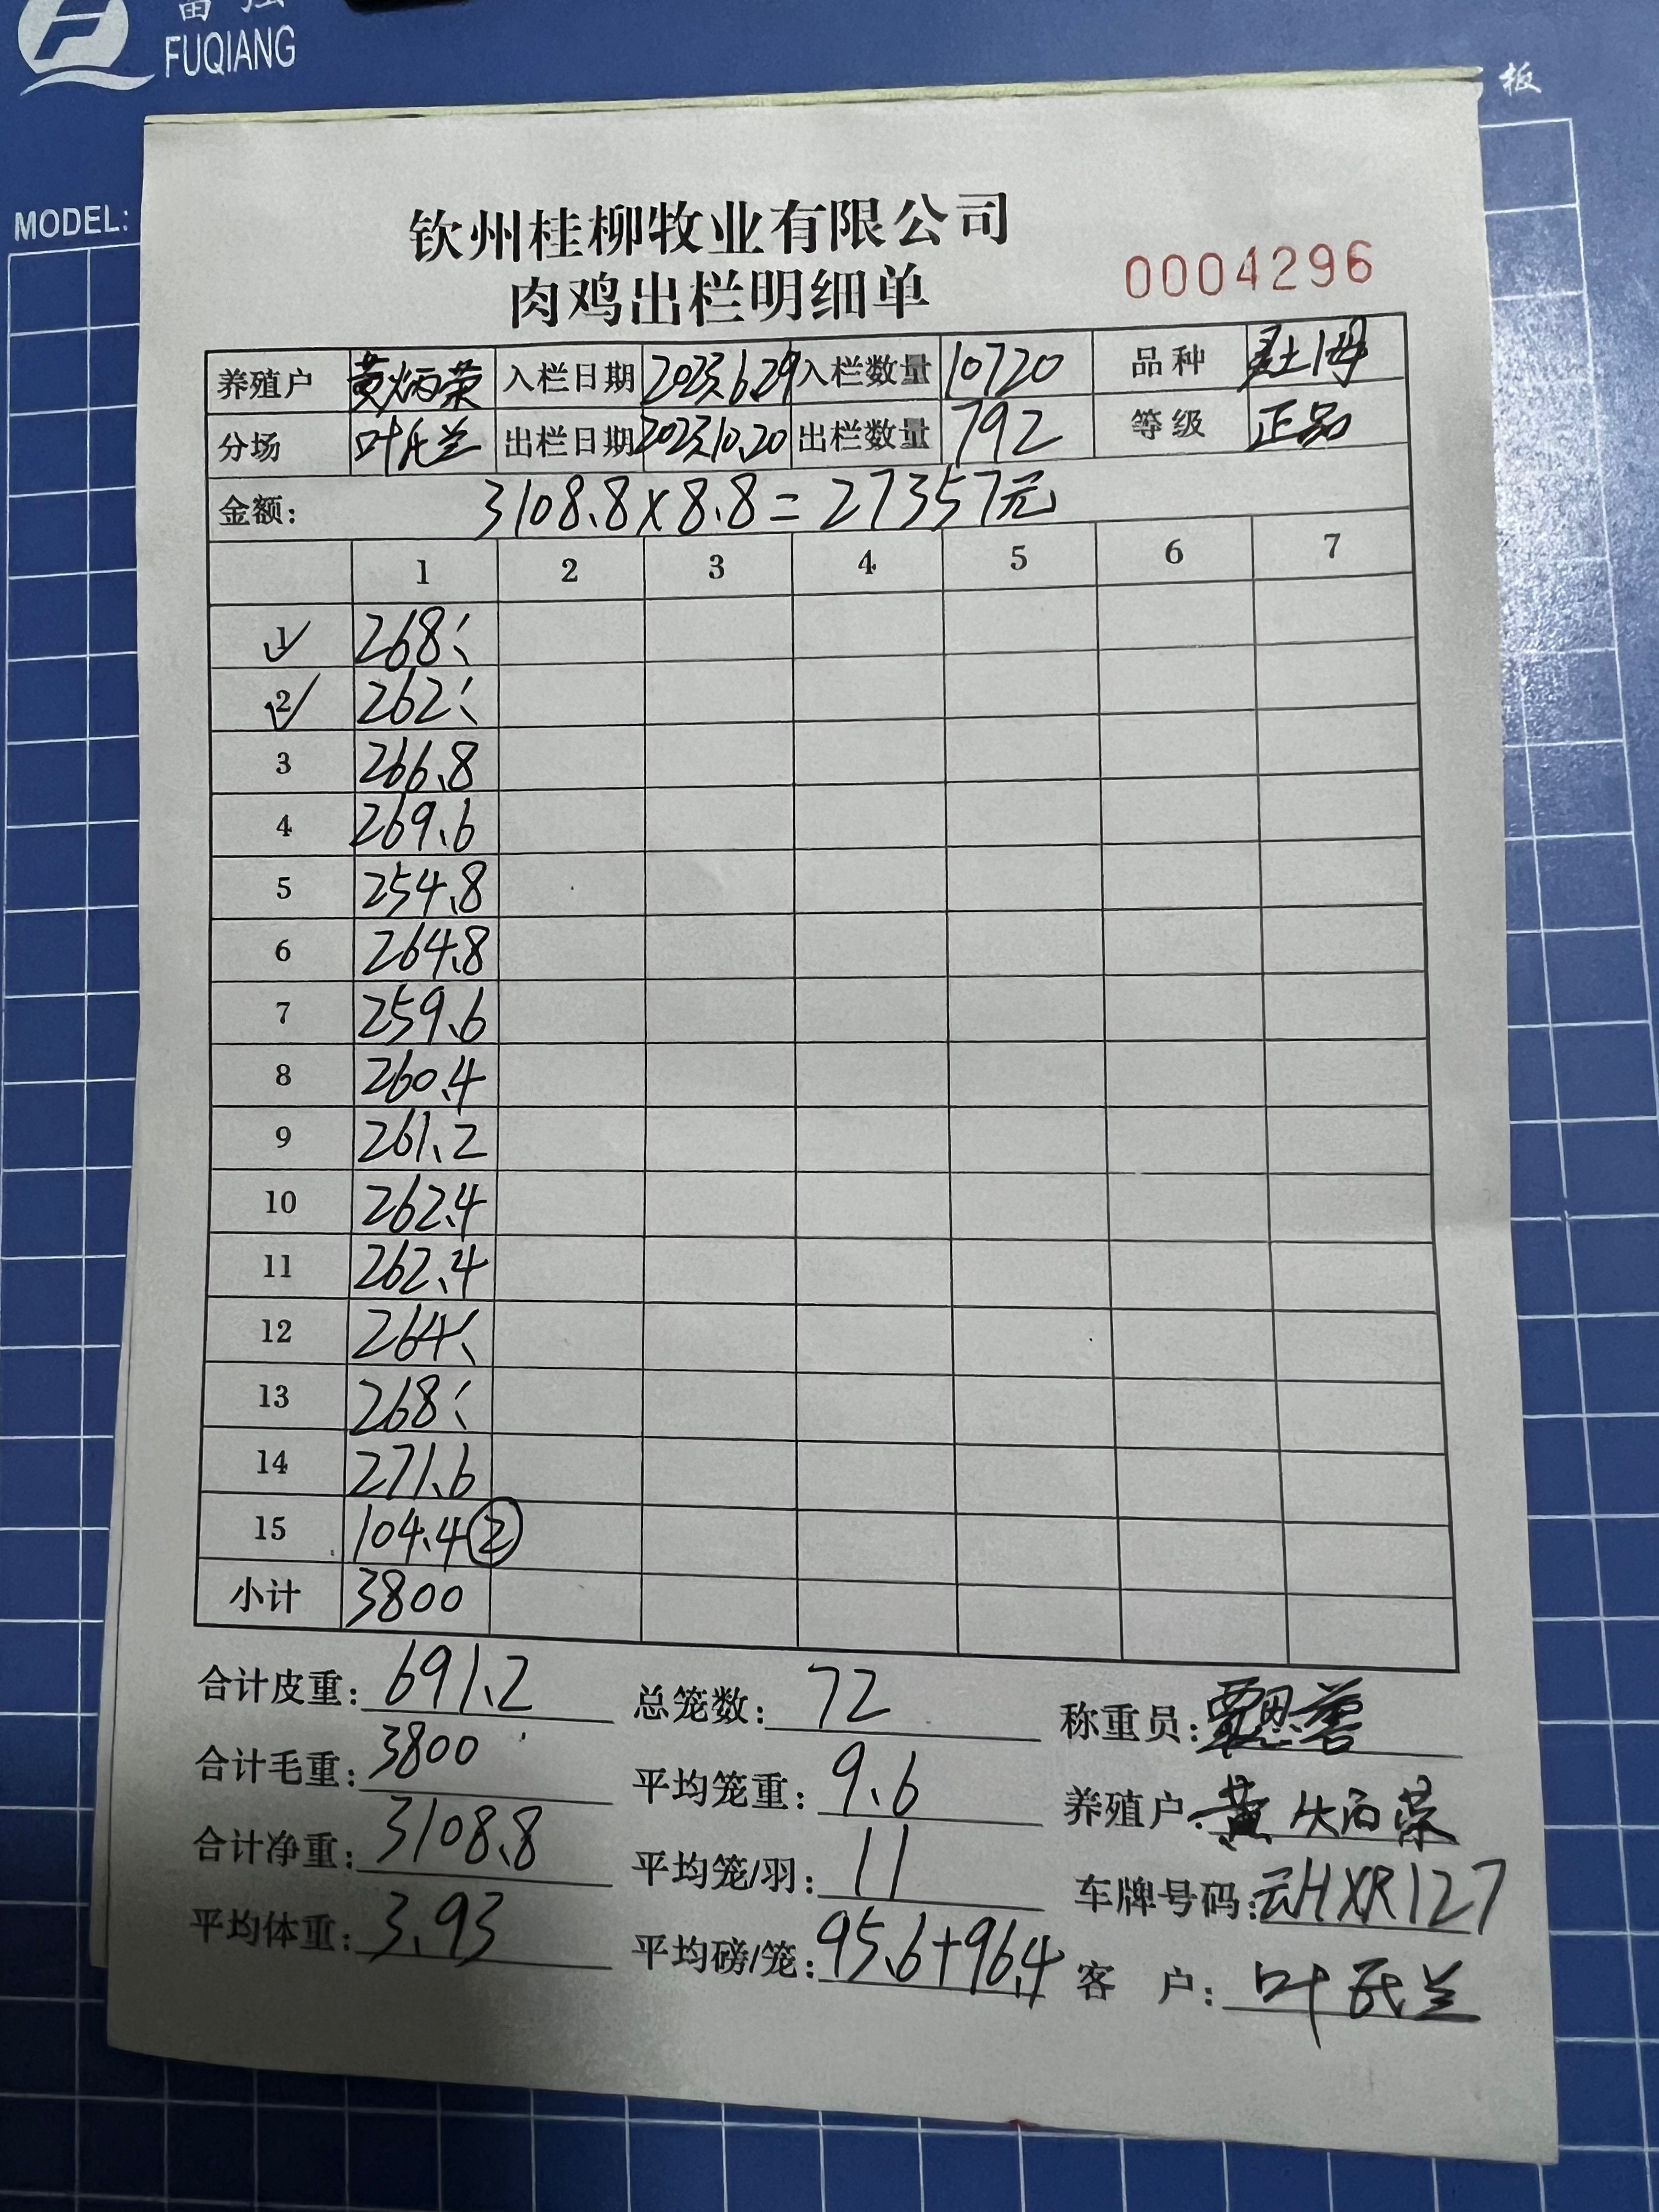 富强
FUQIANG
板
MODEL:
钦州桂柳牧业有限公司
肉鸡出栏明细单
0004296
养殖户 黄炳荣 入栏日期 2023.6.29 入栏数量 10720 品种
分场 叶 兰 出栏日期 2023.10.20 出栏数量 792 等级 正品
金额: 3108.8×8.8=27357元
1 2 3 4 5 6 7
1 268.
2 262.
3 266.8
4 269.6
5 254.8
6 264.8
7 259.6
8 260.4
9 261.2
10 262.4
11 262.4
12 264.
13 268.
14 271.6
15 104.4 ②
小计 3800
合计皮重: 691.2 总笼数: 72 称重员:
合计毛重: 3800 平均笼重: 9.6 养殖户: 黄炳荣
合计净重: 3108.8 平均笼/羽: 11 车牌号码: 云HXR127
平均体重: 3.93 平均磅/笼: 95.6+96.4 客 户: 叶 兰